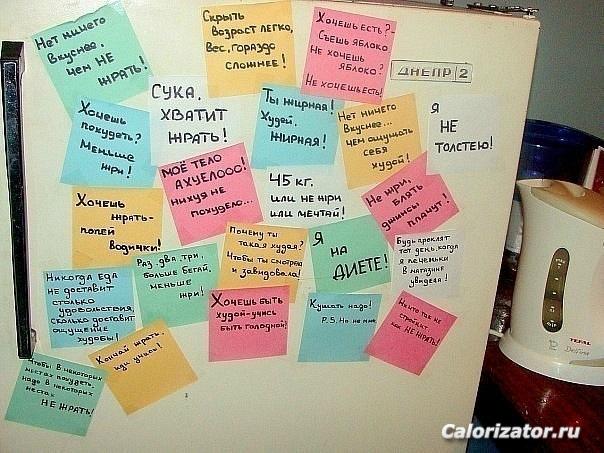 Нет ничего
вкуснее,
чем НЕ
ЖРАТЬ!
Скрыть
возраст легко,
Вес, гораздо
сложнее!
Хочешь есть? -
Съешь яблоко
Не хочешь
яблоко?
Не хочешь есть!
ДНЕПР 2
Хочешь
похудеть?
Меньше
жри!
СУКА,
ХВАТИТ
ЖРАТЬ!
Ты жирная!
Худей,
ЖИРНАЯ!
Нет ничего
Вкуснее...
чем ощущать
себя
худой!
Я
НЕ
ТОЛСТЕЮ!
МОЁ ТЕЛО
АХУЕЛООО!
нихуя не
похудело...
45 кг.
или не жри
или мечтай!
Не жри,
блять
джинсы
плачут!
Хочешь
жрать-
попей
водички!
Почему ты
такая худая?
Чтобы ты смотрела
и завидовала!
Я
НА
ДИЕТЕ!
Будь проклят
тот день, когда
я печеньки
в магазине
увидела!
Никогда еда
не доставит
столько
удовольствия,
сколько доставит
ощущение
худобы!
Раз, два, три,
больше бегай,
меньше
жри!
Хочешь быть
худой-учись
быть голодной!
Кушать надо!
P.S. Но не мне
Ничто так не
стройнит
как НЕ ЖРАТЬ!
Чтобы в некоторых
местах похудеть,
надо в некоторых
местах
НЕ ЖРАТЬ!
Кончай жрать,
иди учись!
TEFAL
Delfini
Calorizator.ru